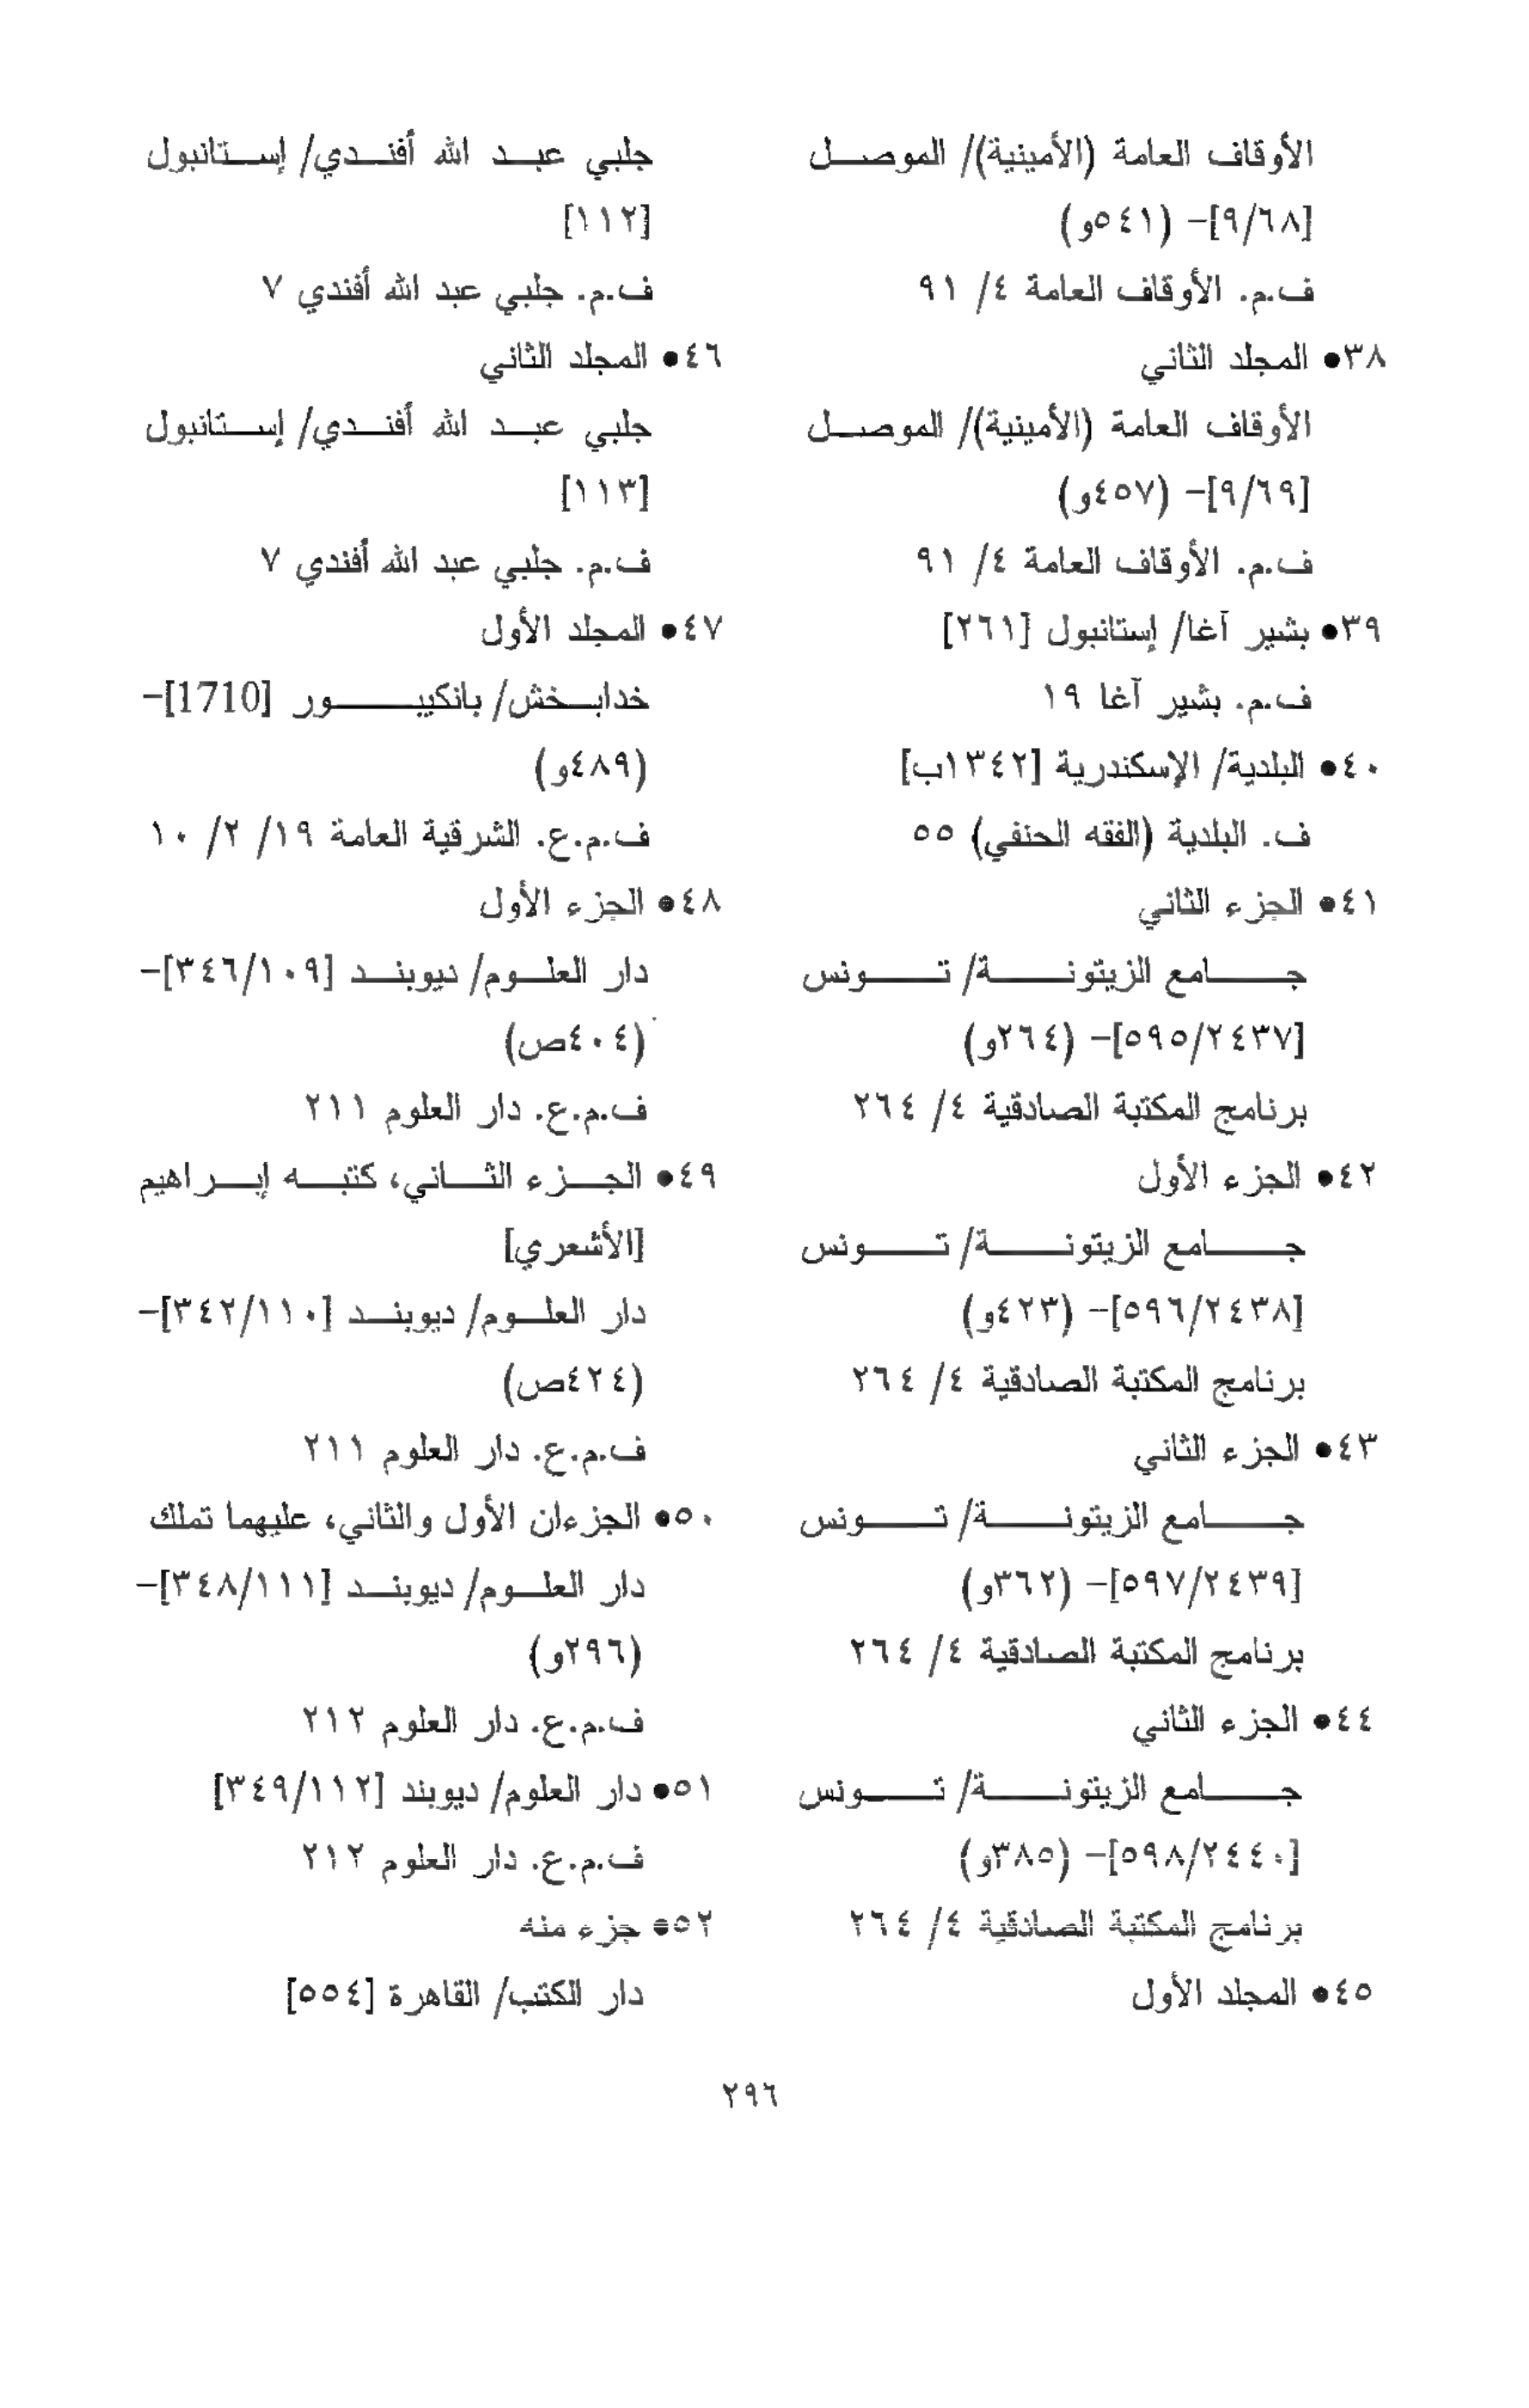 الأوقاف العامة (الأمينية)/ الموصل
[٩/٦٨]- (٥٤١و)
ف.م. الأوقاف العامة ٤/ ٩١
٣٨• المجلد الثاني
الأوقاف العامة (الأمينية)/ الموصل
[٩/٦٩]- (٤٥٧و)
ف.م. الأوقاف العامة ٤/ ٩١
٣٩• بشير آغا/ إستانبول [٢٦١]
ف.م. بشير آغا ١٩
٤٠• البلدية/ الإسكندرية [١٣٤٢ب]
ف. البلدية (الفقه الحنفي) ٥٥
٤١• الجزء الثاني
جامع الزيتونة/ تونس
[٥٩٥/٢٤٣٧]- (٢٦٤و)
برنامج المكتبة الصادقية ٤/ ٢٦٤
٤٢• الجزء الأول
جامع الزيتونة/ تونس
[٥٩٦/٢٤٣٨]- (٤٢٣و)
برنامج المكتبة الصادقية ٤/ ٢٦٤
٤٣• الجزء الثاني
جامع الزيتونة/ تونس
[٥٩٧/٢٤٣٩]- (٣٦٢و)
برنامج المكتبة الصادقية ٤/ ٢٦٤
٤٤• الجزء الثاني
جامع الزيتونة/ تونس
[٥٩٨/٢٤٤٠]- (٣٨٥و)
برنامج المكتبة الصادقية ٤/ ٢٦٤
٤٥• المجلد الأول
جلبي عبد الله أفندي/ إستانبول
[١١٢]
ف.م. جلبي عبد الله أفندي ٧
٤٦• المجلد الثاني
جلبي عبد الله أفندي/ إستانبول
[١١٣]
ف.م. جلبي عبد الله أفندي ٧
٤٧• المجلد الأول
خدابخش/ بانكيبور [1710]-
(٤٨٩و)
ف.م.ع. الشرقية العامة ١٩/ ٢/ ١٠
٤٨• الجزء الأول
دار العلوم/ ديوبند [٣٤٦/١٠٩]-
(٤٠٤ص)
ف.م.ع. دار العلوم ٢١١
٤٩• الجزء الثاني، كتبه إبراهيم
[الأشعري]
دار العلوم/ ديوبند [٣٤٢/١١٠]-
(٤٢٤ص)
ف.م.ع. دار العلوم ٢١١
٥٠• الجزءان الأول والثاني، عليهما تملك
دار العلوم/ ديوبند [٣٤٨/١١١]-
(٢٩٦و)
ف.م.ع. دار العلوم ٢١٢
٥١• دار العلوم/ ديوبند [٣٤٩/١١٢]
ف.م.ع. دار العلوم ٢١٢
٥٢• جزء منه
دار الكتب/ القاهرة [٥٥٤]
٢٩٦